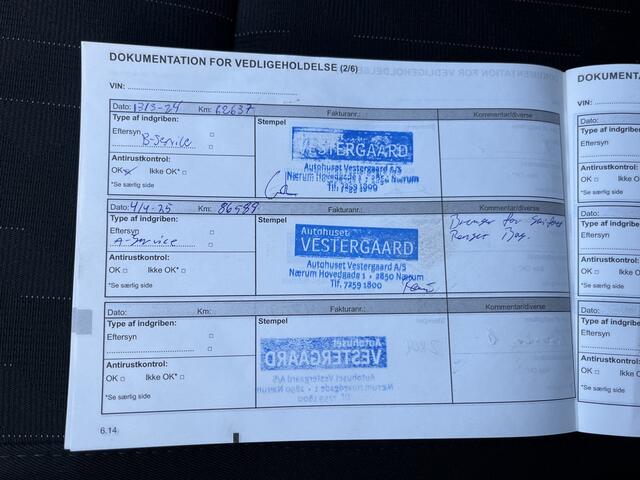 DOKUMENTATION FOR VEDLIGEHOLDELSE (2/6)
VIN:
Dato: 13/3-24 Km: 62637 Fakturanr.: Kommentar/diverse
Type af indgriben:
Eftersyn
B-Service
Stempel
VESTERGAARD
Autohuset Vestergaard A/S
Nærum Hovedgade 1 • 2850 Nærum
Tlf. 7259 1800
Antirustkontrol:
OK Ikke OK*
*Se særlig side
Dato: 4/4-25 Km: 86599 Fakturanr.: Kommentar/diverse
Type af indgriben:
Eftersyn
A-Service
Stempel
Autohuset
VESTERGAARD
Autohuset Vestergaard A/S
Nærum Hovedgade 1 • 2850 Nærum
Tlf. 7259 1800
Antirustkontrol:
OK Ikke OK*
*Se særlig side
Dato: Km: Fakturanr.: Kommentar/diverse
Type af indgriben:
Eftersyn
Stempel
Autohuset
VESTERGAARD
Autohuset Vestergaard A/S
Nærum Hovedgade 1 • 2850 Nærum
Tlf. 7259 1800
Antirustkontrol:
OK Ikke OK*
*Se særlig side
6.14
DOKUMENTA
VIN:
Dato:
Type af indgribe
Eftersyn
Antirustkontrol:
OK Ikke OK*
*Se særlig side
Dato:
Type af indgribe
Eftersyn
Antirustkontrol:
OK Ikke OK*
*Se særlig side
Dato:
Type af indgribe
Eftersyn
Antirustkontrol:
OK Ikke OK*
*Se særlig side